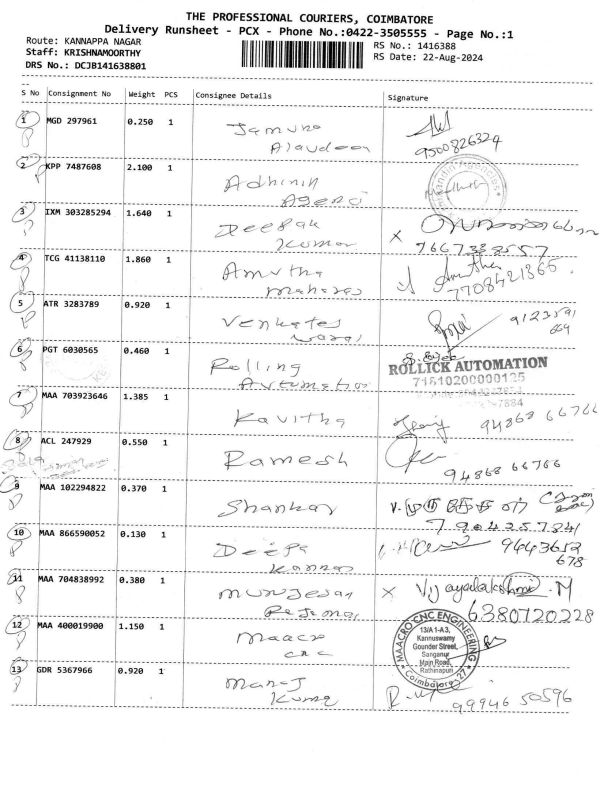 THE PROFESSIONAL COURIERS, COIMBATORE
Delivery Runsheet - PCX - Phone No.:0422-3505555 - Page No.:1
Route: KANNAPPA NAGAR
RS No.: 1416388
Staff: KRISHNAMOORTHY
RS Date: 22-Aug-2024
DRS No.: DCJB141638801
S No Consignment No Weight PCS Consignee Details Signature
1 MGD 297961 0.250 1 Jamuna
Alaudeen 9500826324
2 KPP 7487608 2.100 1
Adhinih
3 IXM 303285294 1.640 1 Deepak
Kumar x 7667333557
4 TCG 41138110 1.860 1 Amutha
7708421365
5 ATR 3283789 0.920 1 Venkates
6 PGT 6030565 0.460 1 Rolling
Automation
ROLLICK AUTOMATION
71510200000125
7 MAA 703923646 1.385 1 Kavitha
94868 66766
8 ACL 247929 0.550 1 Ramesh
94868 66766
9 MAA 102294822 0.370 1 Shankar
10 MAA 866590052 0.130 1 Deepa
Kannan 9443652
678
11 MAA 704838992 0.380 1 Murugesan x Vijayalakshmi. M
6380720228
12 MAA 400019900 1.150 1 Maacro
CNC
MAACRO CNC ENGINEERING
13/A1-A3,
Kannuswamy
Gounder Street,
Sanganur
Main Road,
Rathinapuri
Coimbatore-27
13 GDR 5367966 0.920 1 Manoj
Kumar 99946 50596